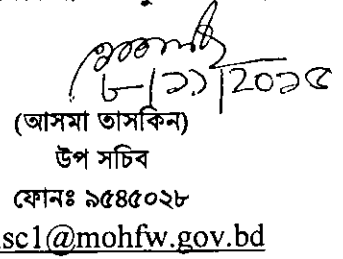 ৮/১১/২০১৫
(আসমা তাসকিন)
উপ সচিব
ফোনঃ ৯৫৪৫০২৮
sc1@mohfw.gov.bd